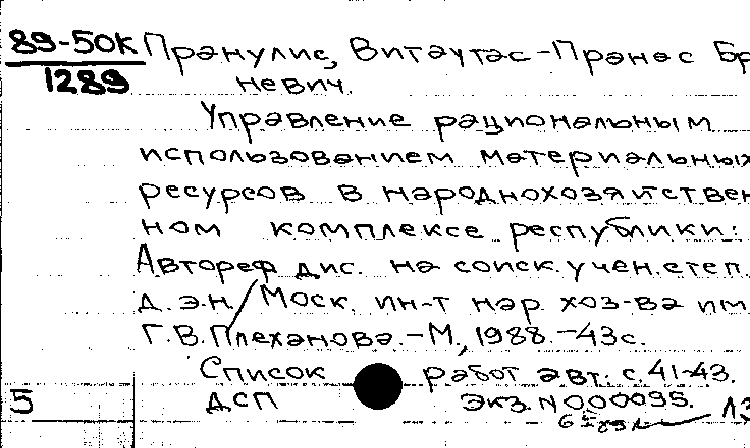 89-50К Пранулис, Витаутас-Пранас Бр
1289 невич.
Управление рациональным
использованием материальных
ресурсов в народнохозяйствен
ном комплексе республики:
Автореф дис. на соиск. учен. степ.
д. э. н. / Моск. ин-т нар. хоз-ва им
Г. В. Плеханова. - М., 1988. - 43 с.
Список работ авт.: с. 41-43.
5 ДСП Экз. N 000095.